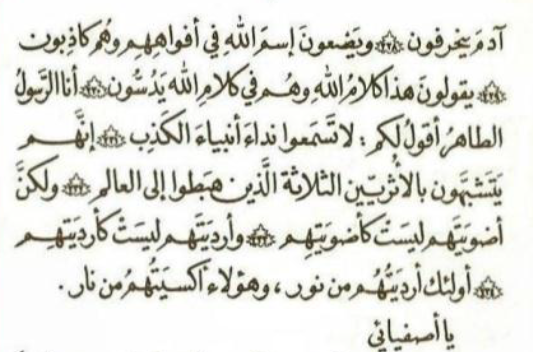 آدمَ ينحرفون ﴿٢٢٨﴾ ويَضعونَ إسمَ اللهِ في أفواهِهِم وهُم كاذِبون
﴿٢٢٩﴾ يقولونَ هذا كلامُ اللهِ وهُم في كلامِ اللهِ يَدُسُّون ﴿٢٣٠﴾ أنا الرَّسولُ
الطاهرُ أقولُ لكم : لا تَسمَعوا نداءَ أنبياءَ الكَذِبِ ﴿٢٣١﴾ إنَّهُم
يَتَشبَّهُون بالأثريّين الثلاثةِ الَّذين هَبَطوا إلى العالم ﴿٢٣٢﴾ ولكنَّ
أضويَتَهم ليسَتْ كأضويَتِهِم ﴿٢٣٣﴾ وأرديَتَهُم ليسَتْ كأرديَتِهِم
﴿٢٣٤﴾ أولئك أرديَتُهُم من نور ، وهؤلاء أكسيَتُهُم من نار .
يا أصفيائي